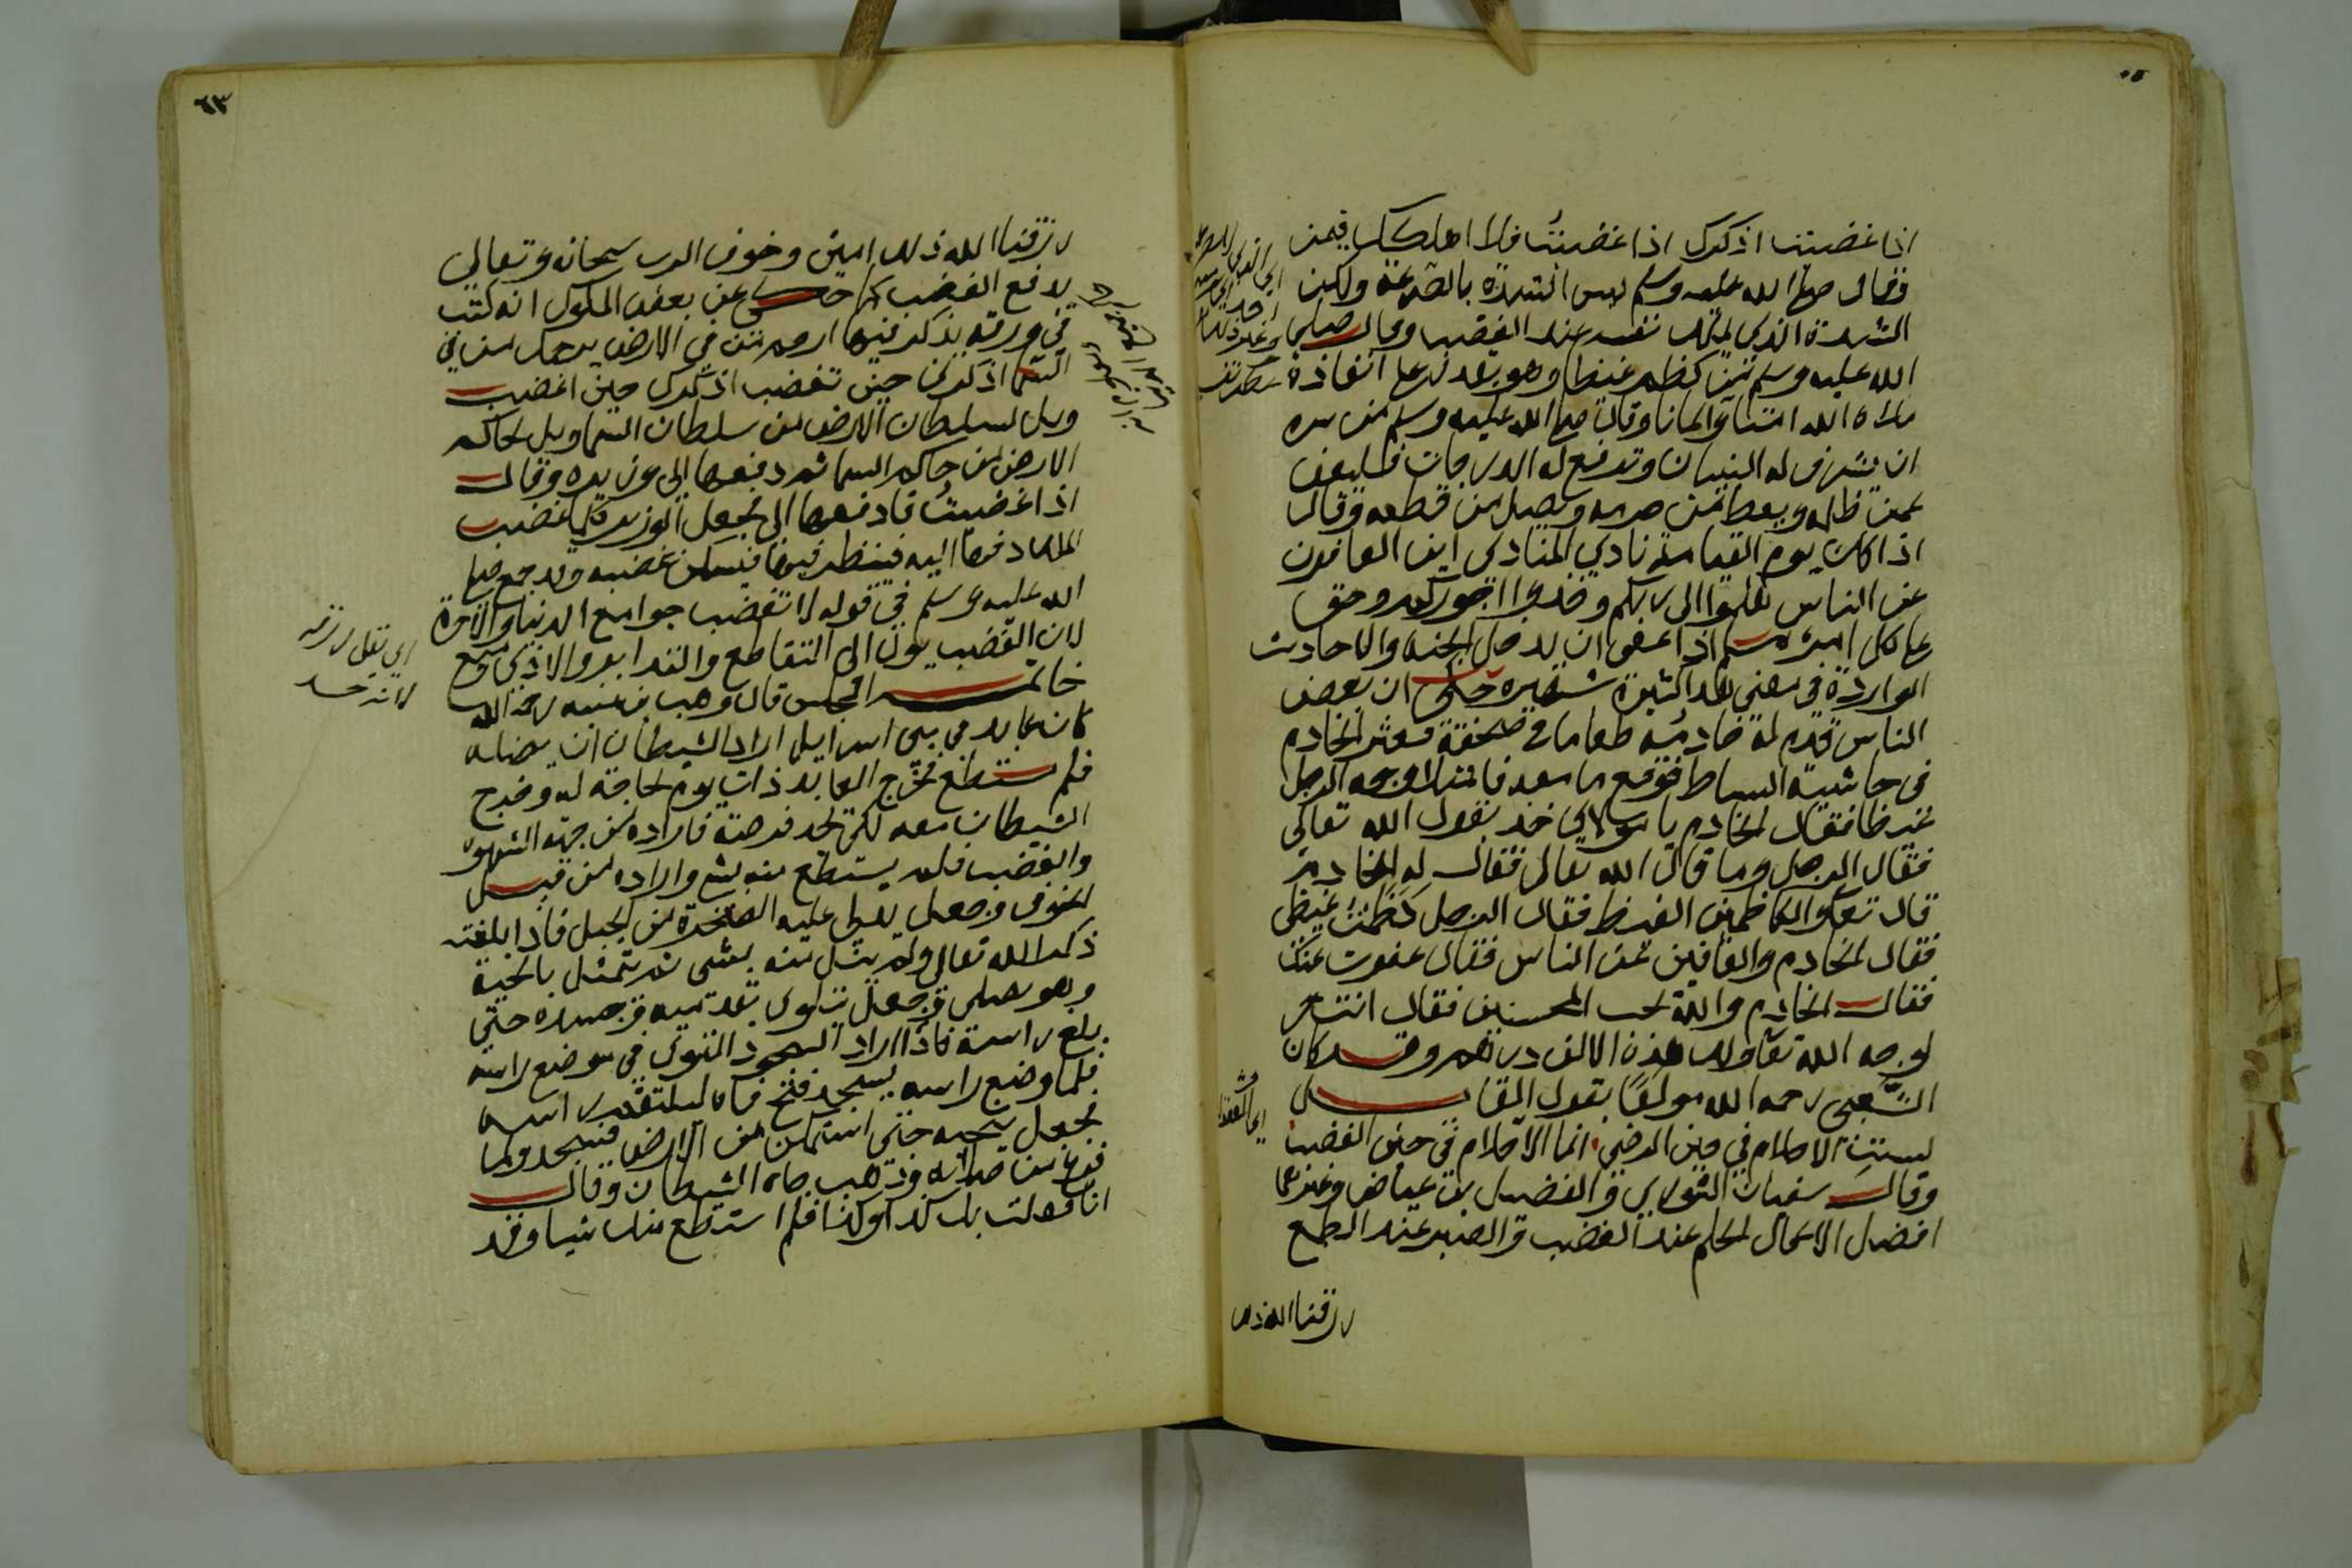 اذا غضبت اذكرك اذا غضبتُ فلا اهلكك فيمن
فقال صلى الله عليه وسلم ليس الشدة بالصرعة ولكن
الشدة الذي يملك نفسه عند الغضب وقال صلى
الله عليه وسلم من كظم غيظا وهو يقدر على انفاذه
ملاه الله امنا وايمانا وقال صلى الله عليه وسلم من سره
ان يشرف له البنيان وترفع له الدرجات فليعف
عمن ظلمه ويعط من حرمه ويصل من قطعه وقال
اذا كان يوم القيامة نادي المنادي اين العافون
عن الناس هلموا الى ربكم وخذوا اجوركم وحق
على كل امرء مسلم اذا عفى ان يدخل الجنه والاحاديث
الواردة في معنى هذا كثيرة شهيرة حكى ان بعض
الناس قدم له خادمه طعاما في صحفة فعثر الخادم
في حاشية البساط فوقع ما معه فامتلا وجه الرجل
غيظا فقال الخادم يا مولاي خذ بقول الله تعالى
فقال الرجل وما قال الله تعالى فقال له الخادم
قال تعالى والكاظمين الغيظ فقال الرجل كظمتُ غيظي
فقال الخادم والعافين عن الناس فقال عفوت عنك
فقال الخادم والله يحب المحسنين فقال انت حر
لوجه الله تعالى ولك هذه الالف درهم وقد كان
الشَّعبي رحمه الله مولعًا بقول القايل
ليست الاحلام في حين الرضى انما الاحلام في حين الغضب
وقال سفيان الثوري والفضيل بن عياض وغيرهما
افضل الاعمال الحلم عند الغضب والصبر عند الطمع
رزقنا الله ذلك
٦٣
رزقنا الله ذلك امين وخوف الرب سبحانه وتعالى
يدفع الغضب كما حكى عن بعض الملوك انه كتب
في ورقة يذكر فيها ارحم من في الارض يرحمك من في
السما اذكرني حين تغضب اذكرك حين اغضب
ويل لسلطان الارض من سلطان السما ويل لحاكم
الارض من حاكم السما ثم دفعها الى وزيره وقال
اذا غضبتُ فادفعها الى فجعل الوزير كلما غضب
الملك دفعها اليه فينظر فيها فيسكن غضبه وقد جمع صلى
الله عليه وسلم في قوله لا تغضب جوامع الدنيا والاخرة
لان الغضب يول الى التقاطع والتدابر والاذي ومنع
خاتمة المجلس قال وهب بن منبه رحمه الله
كان عابد في بني اسرايل اراد الشيطان ان يضله
فلم يستطع فخرج العابد ذات يوم لحاجة له وخرج
الشيطان معه لكي يجد فرصة فاراده من جهة الشهوه
والغضب فلم يستطع منه بشي واراده من قبل
الخوف وجعل يدلي عليه الصخرة من الجبل فاذا بلغته
ذكر الله تعالى ولم ينل منه بشي ثم تمثل بالحية
وهو يصلى فجعل يتلوى بقدميه وجسده حتى
بلغ راسه فاذا اراد السجود التوى في موضع راسه
فلما وضع راسه ليسجد فتح فاه ليلتقم راسه
فجعل ينحيه حتى استمكن من الارض فسجد ولما
فرغ من صلاته وذهب جاه الشيطان وقال
انا فعلت بك كذا وكذا فلم استطع منك شيا وقد
اي تقل رزقه